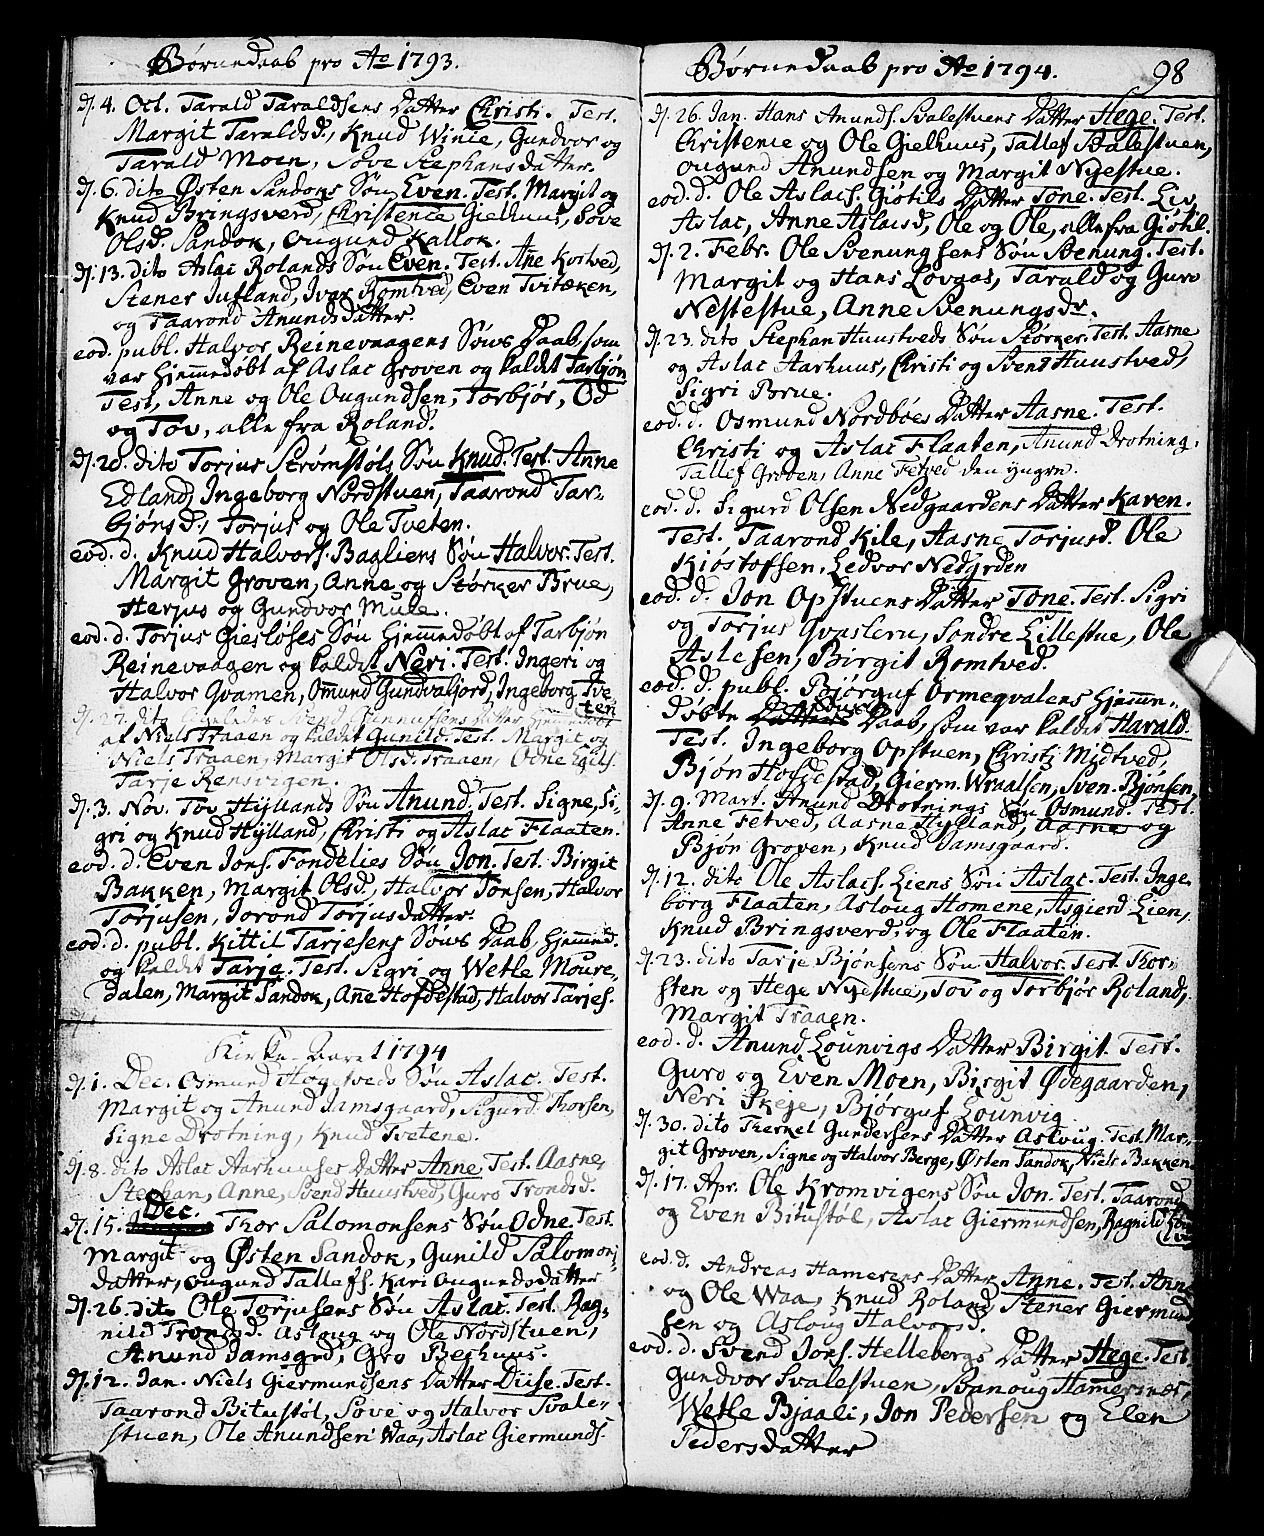 Børnedaab pro Ao 1793.
dj. 4. Oct. Tarald Taraldsens Datter Christi. Test.
Margit Taralds d., Knud Winie, Gundvor og
Tarald Moen, Søve Stephans datter.
dj. 6. dito Østen Sandoks Søn Even. Test. Margit og
Knud Bringsverd, Christence Gielhuus, Søve
Olsd. Sandok, Ougund Kallok.
dj. 13. dito Aslac Rolands Søn Even. Test. Ane Kostved,
Stener Jufland, Ivar Romtved, Even Tvitæken,
og Taarond Anundsdatter.
eod. publ. Halvor Reinevaagens Søns Daab, som
var hjemmedøbt af Aslac Groven og kaldet Tarbjøn
Test, Anne og Ole Ougundsen, Torbjør, Od
og Tov, alle fra Roland.
dj. 20. dito Torjus Strømstøls Søn Knud. Test. Anne
Edland, Ingeborg Nordstuen, Taarond Tar-
bjørsd., Torjus og Ole Tveten.
eod. d. Knud Halvors. Bagliens Søn Halvor. Test.
Margit Groven, Anne og Størker Brue,
Herjus og Gundvor Mule.
eod. d. Torjus Giesløses Søn hjemmedøbt af Tarbjøn
Reinevaagen og kaldet Neri. Test. Ingeri og
Halvor Qvamen, Omund Gundvaljord, Ingeborg Tve
ten
dj. 27. dito Svend Gunnufsens Datter hjemmedøbt
af Niels Traaen og kaldet Gunild. Test. Margit og
Niels Traaen, Margit Olsd. Traaen, Odne Egils.
Tarje Rensvigen.
dj. 3. Nov. Tov Hyllands Søn Anund. Test. Signe, Si-
gri og Knud Hylland, Christi og Aslac Flaaten.
eod. d. Even Jons. Fondelies Søn Jon. Test. Birgit
Bakken, Margit Olsd., Halvor Jonsen, Halvor
Torjusen, Jorond Torjusdatter.
eod. d. publ. Kittil Tarjesens Søns Daab, hjemmed.
og kaldet Tarje. Test. Sigri og Wetle Moure-
dalen, Margit Sandok, Ane Hofdestad, Halvor Tarjes.
Kirke-Aaret 1794
dj. 1. Dec. Osmund Høgetveds Søn Aslac. Test.
Margit og Anund Jamsgaard, Sigurd Thorsen,
Signe Drotning, Knud Tvetene.
dj. 8. dito Aslac Aarhuuses Datter Anne Test. Aasne,
Stephan, Anne, Svend Huustved, Guro Tronds d.
Dec.
dj. 15. Thor Salomonsens Søn Odne. Test.
Margit og Østen Sandok, Gunild Salomons
datter, Ougund Tallefs. Kari Ougundsdatter
dj. 26. dito Ole Torjusens Søn Aslac. Test. Rag-
nild Tronds d. Asloug og Ole Nordstuen,
Anund Jamsgrd, Gro Bechuus.
dj. 12. Jan. Niels Giermundsens Datter Diise. Test.
Taarond Bitustøl, Søve og Halvor Svale-
stuen, Ole Anundsen Waa, Aslac Giermunds.
Børnedaab pro Ao 1794.
98
dj. 26. Jan. Hans Anunds. Svalestuens Datter Hege. Test.
Christence og Ole Gielhuus, Tallef Svalestuen,
Ougund Anundsen og Margit Nyestue.
eod. d. Ole Aslacs. Giøtils Datter Tone. Test. Liv,
Aslac, Anne Aslacsd, Ole og Ole, alle fra Giøtil.
dj. 2. Febr. Ole Svenungsens Søn Svenung. Test.
Margit og Hans Lovgas, Tarald og Guro
Nestestue, Anne Svenungsdr.
dj. 23. dito Stephan Huustveds Søn Størker. Test. Aasne
og Aslac Aarhuus, Christi og Svend Huustved,
Sigri Brue.
eod. d. Osmund Nordbøes Datter Aasne. Test.
Christi og Aslac Flaaten, Anund Drotning,
Tallef Groven, Anne Fetved den yngre.
eod. d. Sigurd Olsen Nedgaardens Datter Karen.
Test. Taarond Kile, Aasne Torjusd. Ole
Kiøstofsen, Ledvor Nedgrden
eod. d. Jon Opstuens Datter Tone. Test. Sigri
og Torjus Qvaslern, Sondre Lillestue, Ole
Aslesen, Birgit Romtved.
eod. d. publ. Bjørguf Ormeqvalens hjemme-
døbte Datters Søns Daab, som var kaldet Harald.
Test. Ingeborg Opstuen, Christi Midtved,
Bjøn Hofdestad, Gierm. Wraalsen, Sven. Bjønsen,
dj. 9. Mart. Anund Drotnings Søn Osmund. Test.
Anne Fetved, Aasne Hylland, Aasne og
Bjøn Groven, Knud Jamsgaard.
dj. 12. dito Ole Aslacs. Liens Søn Aslac. Test. Inge-
borg Flaaten, Asloug Homene, Asgierd Lien,
Knud Bringsverd, og Ole Flaaten.
dj. 23. dito Tarje Bjønsens Søn Halvor. Test. Thor-
sten og Hege Nyestue, Tov og Torbjør Roland,
Margit Traaen.
eod. d. Anund Lounvigs Datter Birgit. Test.
Guro og Even Moen, Birgit Ødegaarden,
Neri Skeje, Bjørguf Lounvig
dj. 30. dito Therkel Gundersens Datter Asloug. Test. Mar-
git Groven, Signe og Halvor Berge, Østen Sandok, Niels Bakken.
dj. 17. Apr. Ole Kromvigens Søn Jon. Test. Taarond
og Even Bitustøl, Aslac Giermundsen, Ragnild
eod. d. Andreas Hamerens Datter Anne. Test. Anne
og Ole Waa, Knud Roland, Stener Giermund
sen og Asloug Halvorsd.
eod. d. Svend Jons. Hellebergs Datter Hege. Test.
Gundvor Svalestuen, Svanoug Hamernes,
Wetle Bjaali, Jon Pedersen og Elen
Pedersdatter